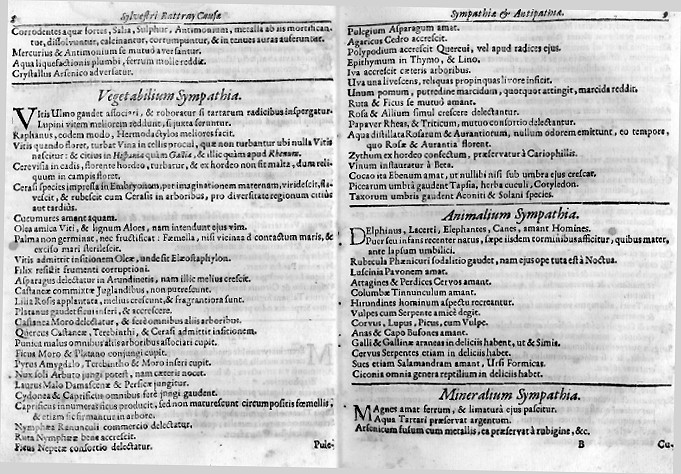 8
Sylvestri Rattray Causæ
Corrodentes aquæ fortes, Salia, Sulphur, Antimonium, metalla ab iis mortifican-
tur, dissolvuntur, calcinantur, corrumpuntur, & in tenues auras auferuntur.
Mercurius & Antimonium se mutuò aversantur.
Aqua liquefactionis plumbi, ferrum molle reddit.
Crystallus Arsenico adversatur.
Vegetabilium Sympathia.
VItis Ulmo gaudet associari, & roboratur si tartarum radicibus inspergatur.
Lupini vitem meliorem reddunt, si juxta serantur.
Raphanus, eodem modo, Hermodactylos meliores facit.
Vitis quando floret, turbat Vina in cellis procul, quæ non turbantur ubi nulla Vitis
nascitur: & citius in Hispania quàm Gallia, & illic quàm apud Rhenum.
Cerevisia in cadis, florente hordeo, turbatur, & ex hordeo non fit malta, dum reli-
quum in campis floret.
Cerasi species impressa in Embryonem, per imaginationem maternam, viridescit, fla-
vescit, & rubescit cum Cerasis in arboribus, pro diversitate regionum citiùs
aut tardiùs.
Cucumeres amant aquam.
Olea amica Viti, & lignum Aloes, nam intendunt ejus vim.
Palma non germinat, nec fructificat: Fæmella, nisi vicina & contactum maris, &
exciso mari sterilescit.
Vitis admittit insitionem Oleæ, unde fit Elæostaphylon.
Filix resistit frumenti corruptioni.
Asparagus delectatur in Arundinetis, nam illic melius crescit.
Castaneæ commixtæ Juglandibus, non putrescunt.
Lilia Rosis applantata, melius crescunt, & fragrantiora sunt.
Platanus gaudet ficui inseri, & accrescere.
Castanea Moro delectatur, & ferè omnibus aliis arboribus.
Quercus Castaneæ, Terebinthi, & Cerasi admittit insitionem.
Punica malus omnibus aliis arboribus associari cupit.
Ficus Moro & Platano conjungi cupit.
Pyrus Amygdalo, Terebintho & Moro inseri cupit.
Nux soli Arbuto jungi potest, nam cæteris nocet.
Laurus Malo Damascenæ & Persicæ jungitur.
Cydonea & Caprificus omnibus ferè jungi gaudent.
Caprificus innumeras ficus producit, sed non maturescunt circumpositis fœmellis,
& etiam sic firmantur in arbore.
Nymphæa Ranunculi commercio delectatur.
Ruta Nymphææ bene accrescit.
Ficus Nepetæ consortio delectatur.
Pule-
Sympathiæ & Antipathiæ.
9
Pulegium Asparagum amat.
Agaricus Cedro accrescit.
Polypodium accrescit Quercui, vel apud radices ejus.
Epithymum in Thymo, & Lino.
Iva accrescit cæteris arboribus.
Uva una livescens, reliquas propinquas livore inficit.
Unum pomum, putredine marcidum, quotquot attingit, marcida reddit.
Ruta & Ficus se mutuò amant.
Rosa & Allium simul crescere delectantur.
Papaver Rheas, & Triticum, mutuo consortio delectantur.
Aqua distillata Rosarum & Aurantiorum, nullum odorem emittunt, eo tempore,
quo Rosæ & Aurantia florent.
Zythum ex hordeo confectum, præservatur à Cariophillis.
Vinum instauratur à Beta.
Cocao ita Ebenum amat, ut nullibi nisi sub umbra ejus crescat.
Picearum umbrâ gaudent Tapsia, herba cuculi, Cotyledon.
Taxorum umbris gaudent Aconiti & Solani species.
Animalium Sympathia.
DElphinus, Lacerti, Elephantes, Canes, amant Homines.
Puer seu infans recenter natus, sæpe iisdem torminibus afficitur, quibus mater,
ante lapsum umbilici.
Rubecula Phænicuri sodalitio gaudet, nam ejus ope tuta est à Noctua.
Luscinia Pavonem amat.
Attagines & Perdices Cervos amant.
Columbæ Tinnunculum amant.
Hirundines hominum aspectu recreantur.
Vulpes cum Serpente amicè degit.
Corvus, Lupus, Picus, cum Vulpe.
Anas & Capo Bufones amant.
Galli & Gallinæ araneas in deliciis habent, ut & Simiæ.
Cervus Serpentes etiam in deliciis habet.
Sues etiam Salamandram amant, Ursi Formicas.
Ciconia omnia genera reptilium in deliciis habet.
Mineralium Sympathia.
MAgnes amat ferrum, & limaturâ ejus pascitur.
Aqua Tartari præservat argentum.
Arsenicum fusum cum metallis, ea præservat à rubigine, &c.
B
Cu-